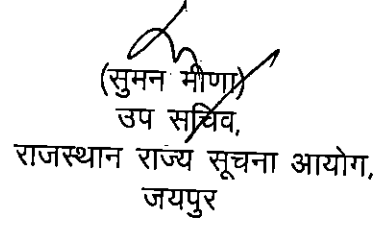 (सुमन मीणा)
उप सचिव,
राजस्थान राज्य सूचना आयोग,
जयपुर